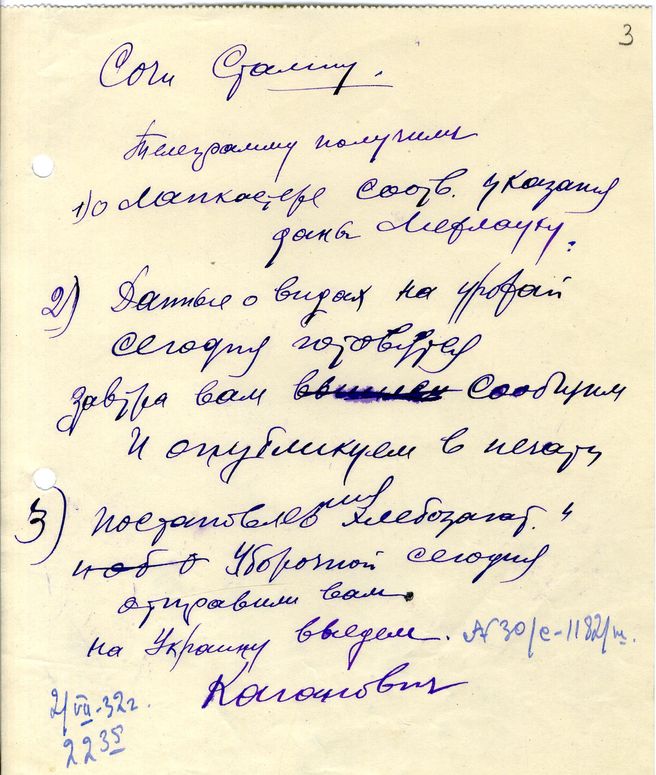 3
Сочи Сталину.
Телеграмму получили
1) о Ланкастере соотв. указания
даны Межлауку.
2) Данные о видах на урожай
сегодня готовятся
завтра вам сообщим
И опубликуем в печати
3) постановления хлебозагот. и
и об о Уборочной сегодня
отправили вам.
на Украину выедем. № 30/с-1182/ш.
Каганович
2/VII-32 г.
22 35